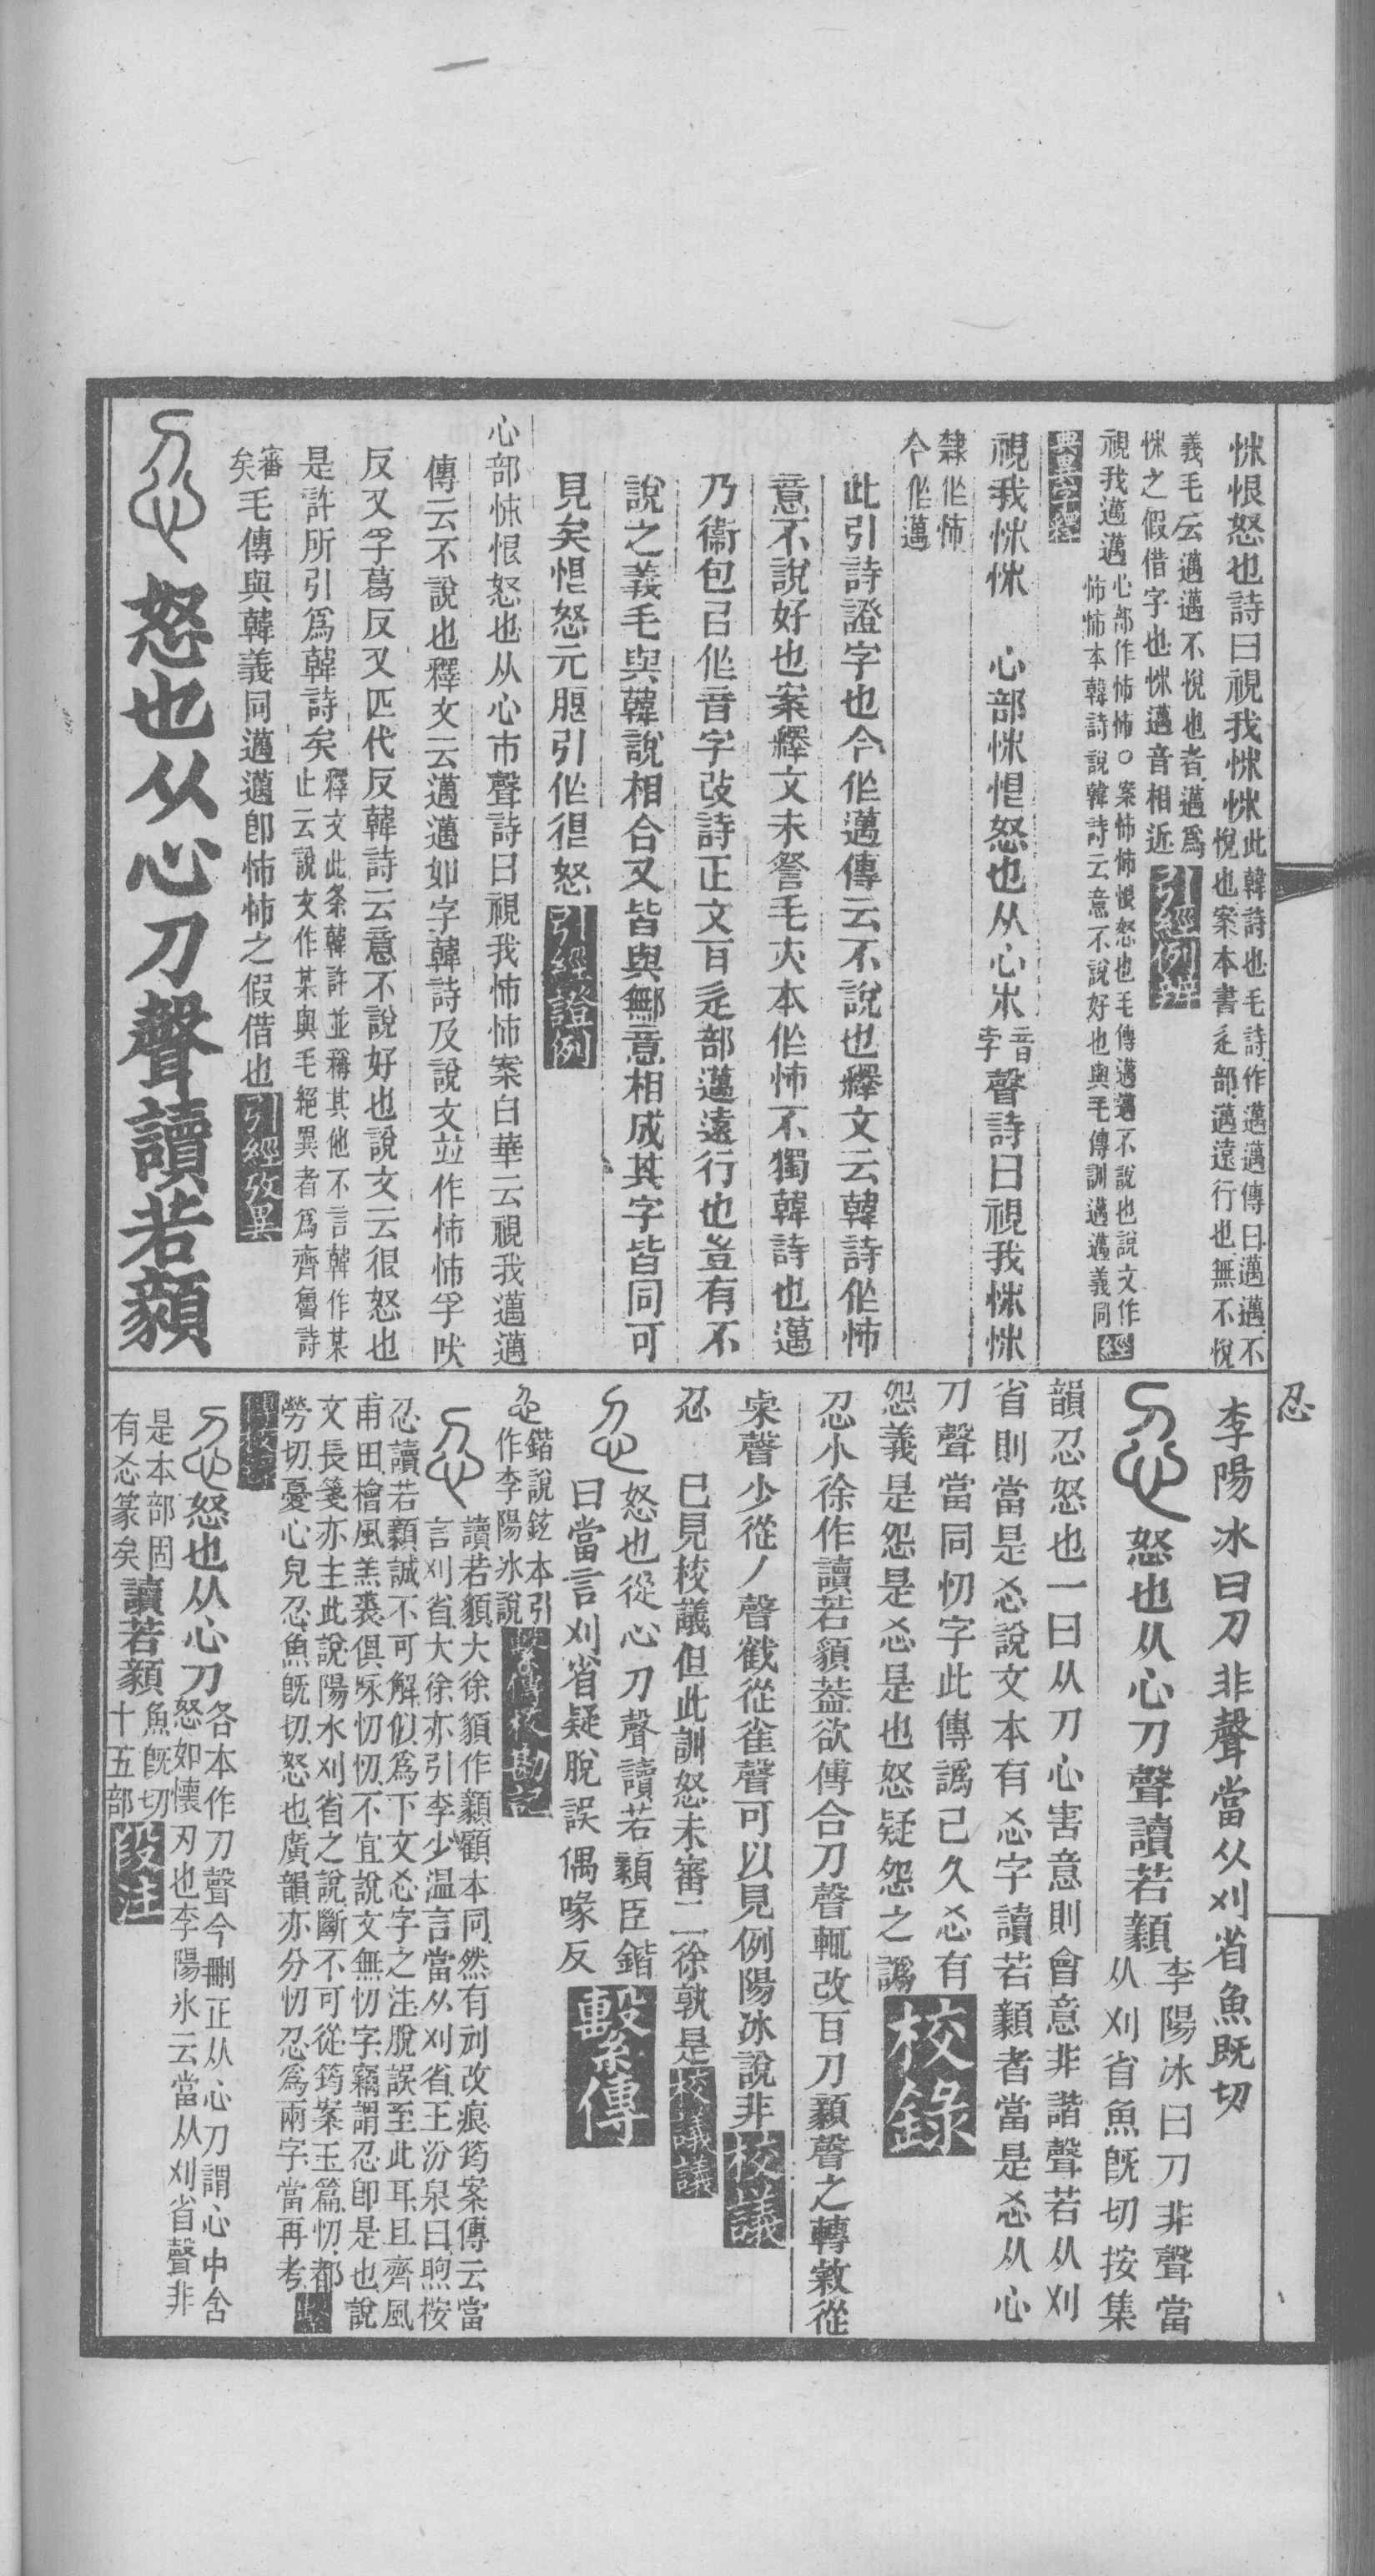 怽恨怒也詩曰視我怽怽此韓詩也毛詩作邁邁傳曰邁邁不
悅也案本書辵部邁遠行也無不悅
義毛云邁邁不悅也者邁爲
怽之假借字也怽邁音相近引經例辨
視我邁邁心部作怖怖○案怖怖恨怒也毛傳邁邁不說也說文作
怖怖本韓詩說韓詩云意不說好也與毛傳訓邁邁義同
視我怽怽 心部怽怛怒也从心朩音孛聲詩曰視我怽怽
隸作怖
今作邁
此引詩證字也今作邁傳云不說也釋文云韓詩作怖
意不說好也案釋文未詧毛亦本作怖不獨韓詩也邁
乃衞包㠯作音字改詩正文百辵部邁遠行也豈有不
說之義毛與韓說相合又皆與鄦意相成其字皆同可
見矣怛怒元應引作很怒引經證例
心部怽恨怒也从心市聲詩曰視我怖怖案白華云視我邁邁
傳云不說也釋文云邁邁如字韓詩及說文竝作怖怖孚吠
反又孚葛反又匹代反韓詩云意不說好也說文云很怒也
是許所引爲韓詩矣釋文此条韓許並稱其他不言韓作某
止云說文作某與毛絕異者爲齊魯詩
審
矣毛傳與韓義同邁邁卽怖怖之假借也引經攷異
怒也从心刀聲讀若顡
忍
李陽冰曰刀非聲當从刈省魚既切
怒也从心刀聲讀若顡李陽冰曰刀非聲當
从刈省魚旣切按集
韻忍怒也一曰从刀心害意則會意非諧聲若从刈
省則當是㣻說文本有㣻字讀若顡者當是㣻从心
刀聲當同忉字此傳譌已久㣻有
怨義是怨是㣻是也怒疑怨之譌校錄
忍小徐作讀若䫉葢欲傅合刀聲輒改百刀顡聲之轉敹從
㭆聲少從丿聲截從雀聲可以見例陽冰說非校議
忍 已見校議但此訓怒未審二徐孰是校議議
怒也從心刀聲讀若顡臣鍇
曰當言刈省疑脫誤偶喙反繫傳
鍇說鉉本引
作李陽冰說繫傳校勘記
讀若䫉大徐䫉作顡顧本同然有刓改痕筠案傳云當
言刈省大徐亦引李少温言當从刈省王汾泉曰煦桉
忍讀若顡誠不可解似爲下文㣻字之注脫誤至此耳且齊風
甫田檜風羔裘俱咏忉忉不宜說文無忉字竊謂忍卽是也說
文長箋亦主此說陽冰刈省之說斷不可從筠案玉篇忉都
勞切憂心皃忍魚旣切怒也廣韻亦分忉忍爲兩字當再考
怒也从心刀各本作刀聲今刪正从心刀謂心中含
怒如懷刃也李陽氷云當从刈省聲非
是本部固
有㣻篆矣讀若顡魚旣切
十五部段注